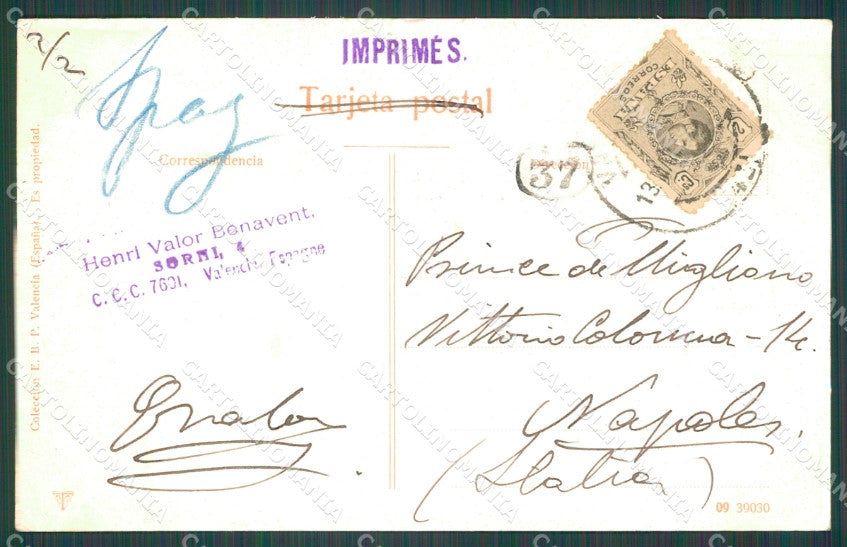 2/2
IMPRIMÉS.
Tarjeta postal
Correspondencia
37
13
Henri Valor Benavent.
SORNI, 4
C. C. C. 7601. Valencia, Espagne
Prince de Migliano
Vittorio Colonna - 14.
Napoles.
(Italia)
Colección E. B. P. Valencia (España). Es propiedad.
09 39030
CARTOLINOMANIA